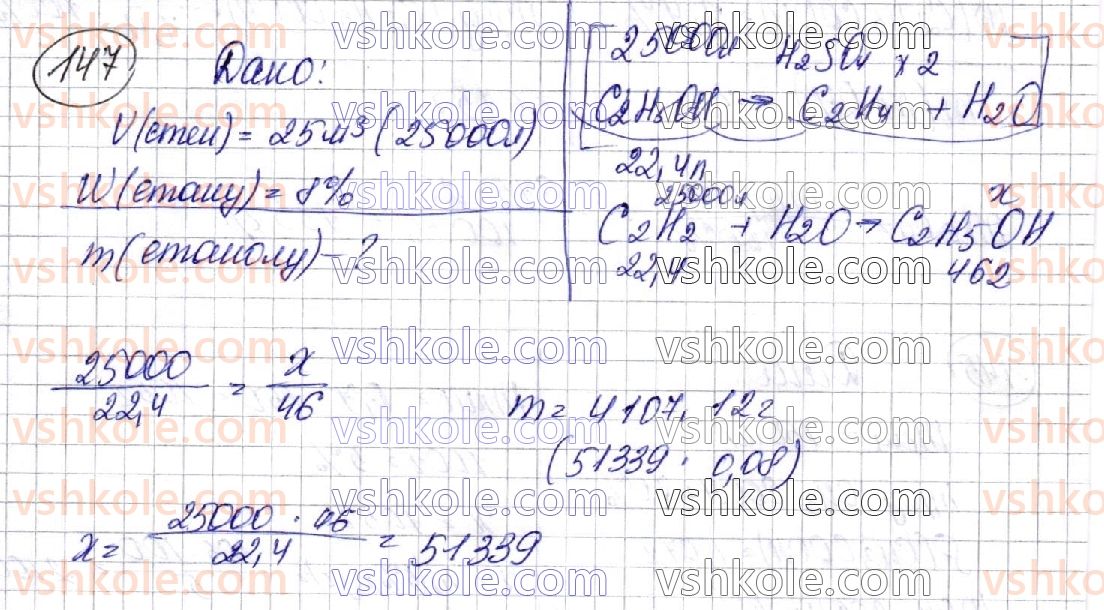 147
Дано:
V(етен) = 25 м³ (25000л)
W(етану) = 8%
m(етанолу) - ?
25000л H2SO4 x2
C2H5OH → C2H4 + H2O
22,4л
25000л x
C2H2 + H2O → C2H5OH
22,4 46г
25000 / 22,4 = x / 46
m = 4107,12г
(51339 · 0,08)
x = 25000 · 46 / 22,4 = 51339
vshkole.com